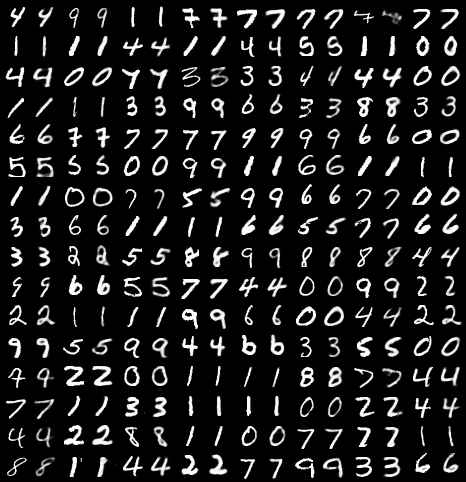 4 4 9 9 1 1 7 7 7 7 7 7 7 7 7
1 1 1 1 4 4 1 1 4 4 5 5 1 1 0 0
4 4 0 0 4 4 3 3 3 3 4 4 4 4 0 0
1 1 1 1 3 3 9 9 6 6 3 3 8 8 3 3
6 6 7 7 7 7 7 7 9 9 9 9 6 6 0 0
5 5 5 5 0 0 9 9 1 1 6 6 1 1 1 1
1 1 0 0 7 7 5 5 9 9 6 6 7 7 0 0
3 3 6 6 1 1 1 1 6 6 5 5 7 7 6 6
3 3 2 2 5 5 8 8 9 9 8 8 8 8 4 4
9 9 6 6 5 5 7 7 4 4 0 0 9 9 2 2
2 2 1 1 1 1 9 9 6 6 0 0 4 4 2 2
9 9 5 5 9 9 4 4 6 6 3 3 5 5 0 0
4 4 2 2 0 0 1 1 1 1 8 8 7 7 4 4
7 7 1 1 3 3 1 1 1 1 0 0 2 2 4 4
4 4 2 2 8 8 1 1 0 0 7 7 7 7 1 1
8 8 1 1 4 4 2 2 7 7 9 9 3 3 6 6